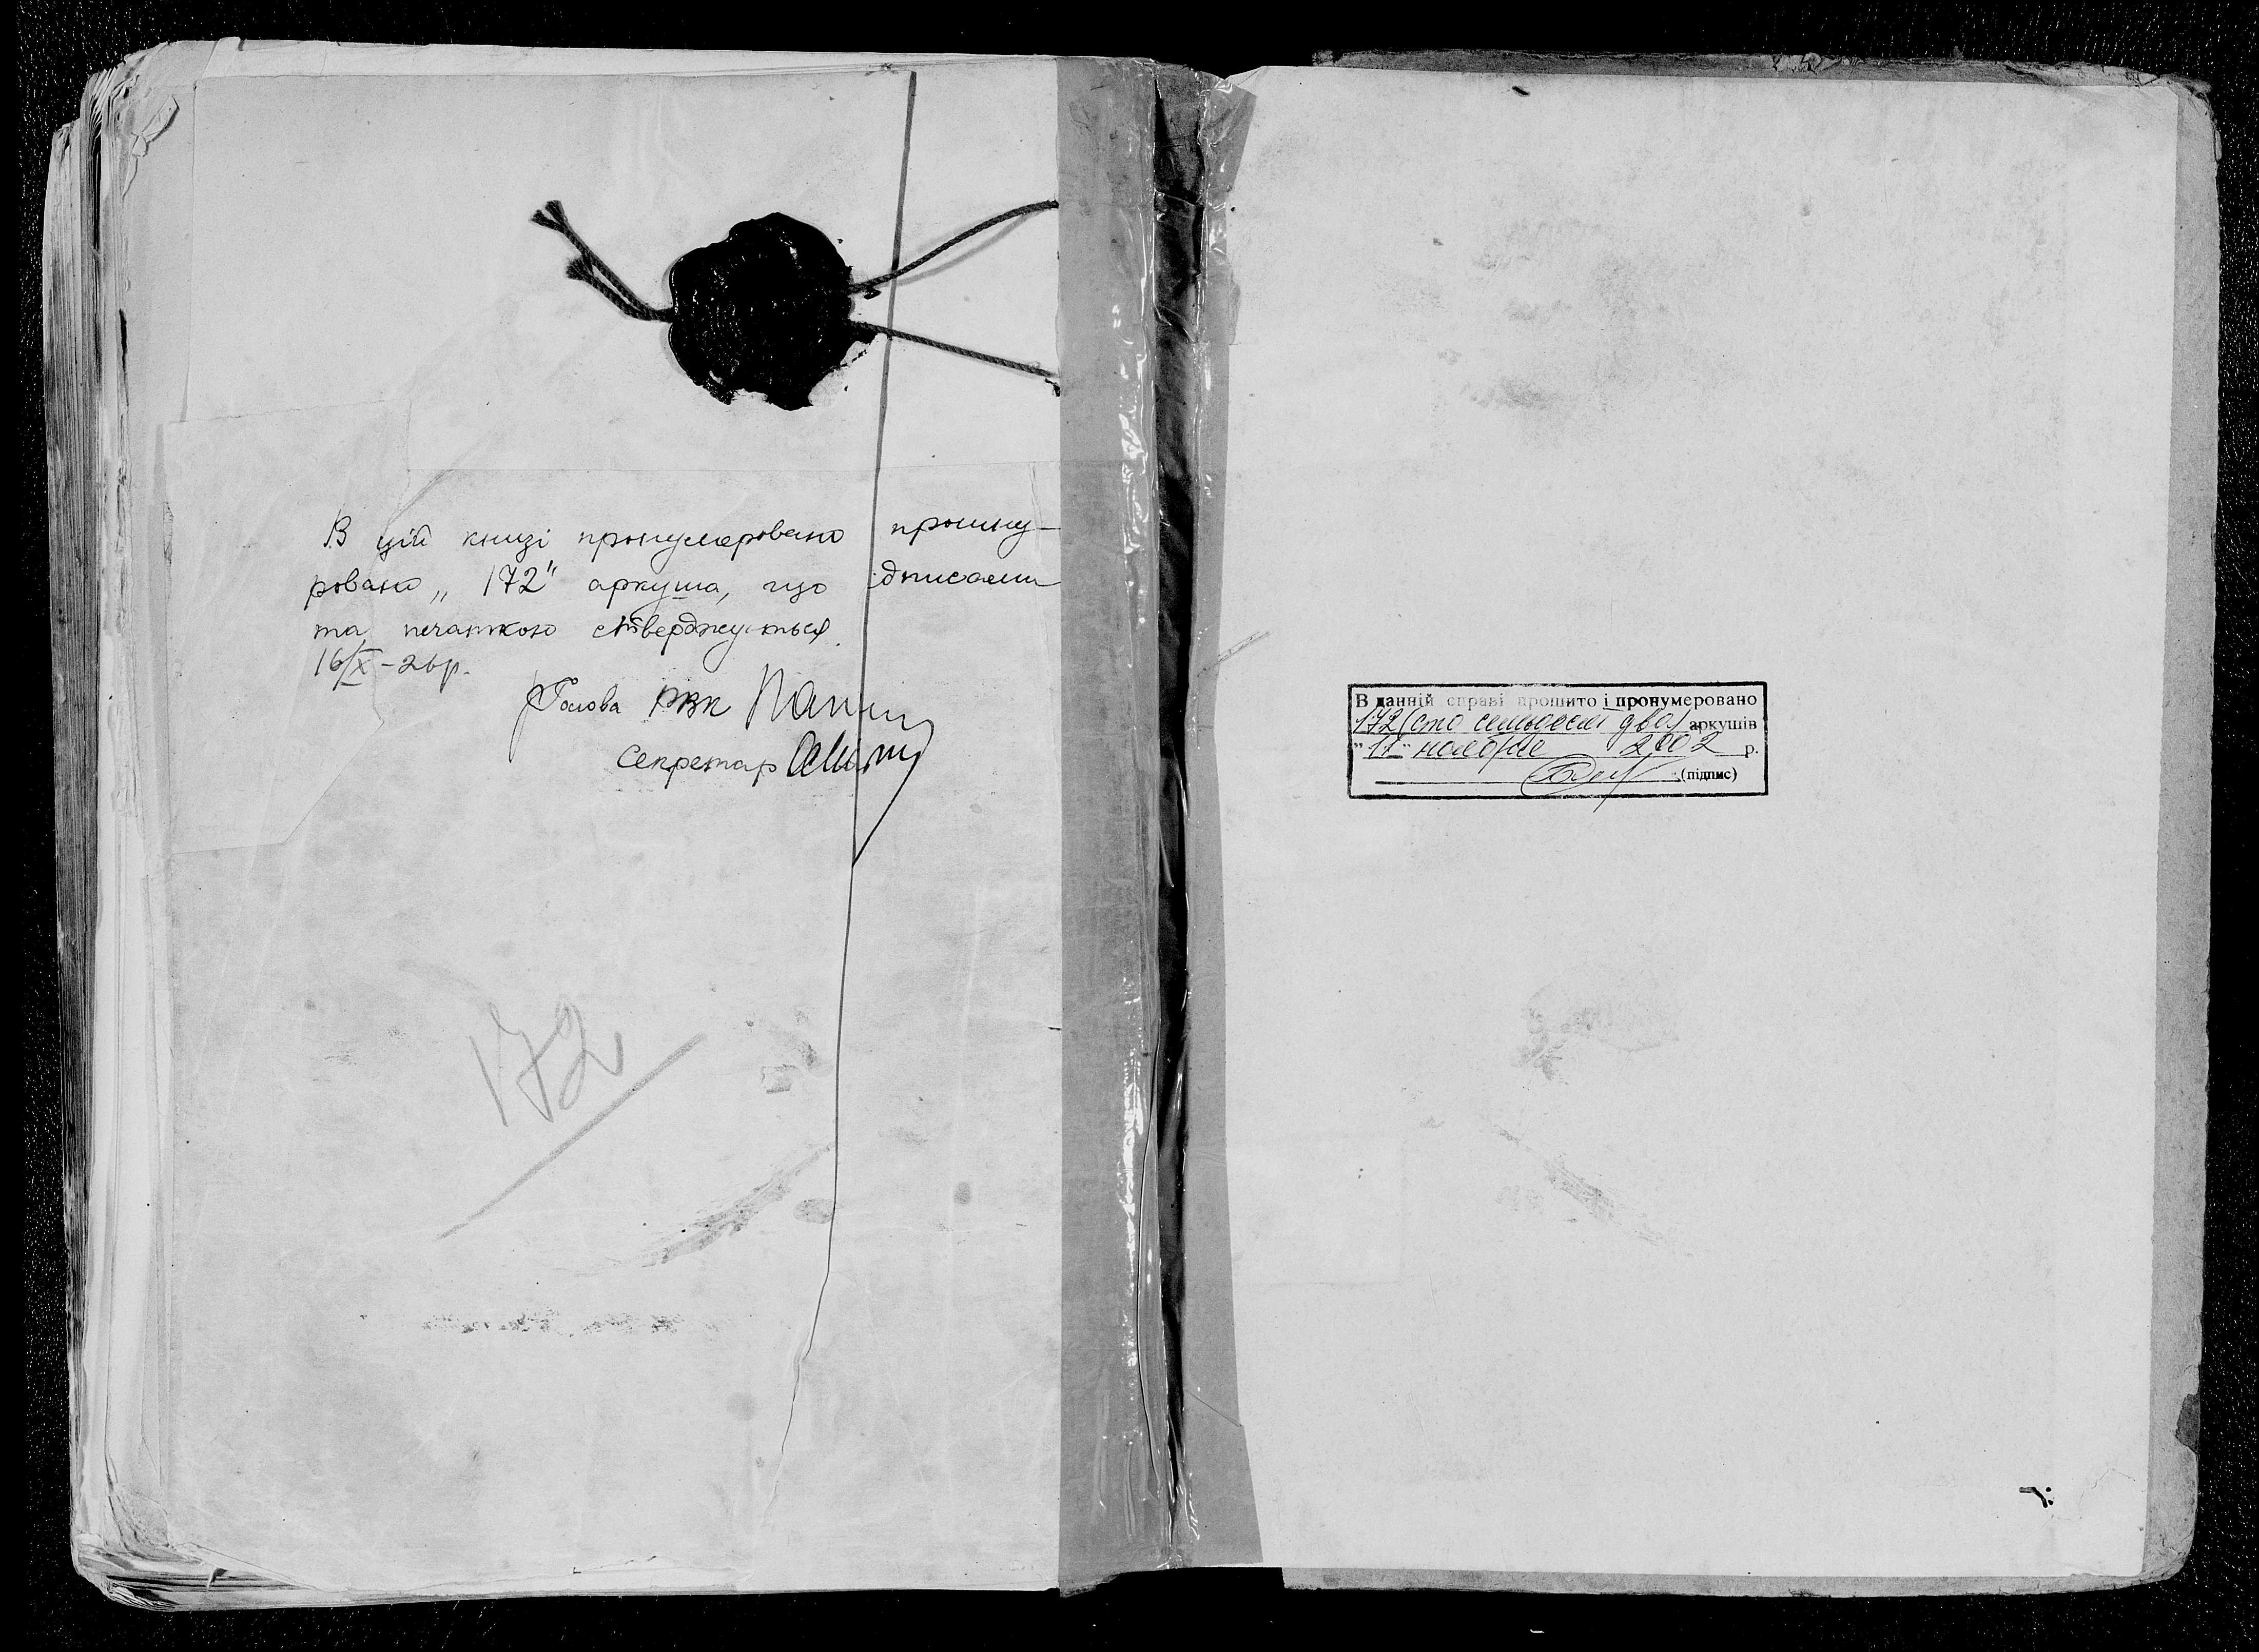 В цій книзі пронумеровано прошну-
ровано „172" аркуша, що підписами
та печаткою стверджується.
16/X-26р.
Голова РВК
Секретар
172
В данній справі прошито і пронумеровано
172 (сто сімдесят два) аркушів
"17" листопада 2002 р.
(підпис)